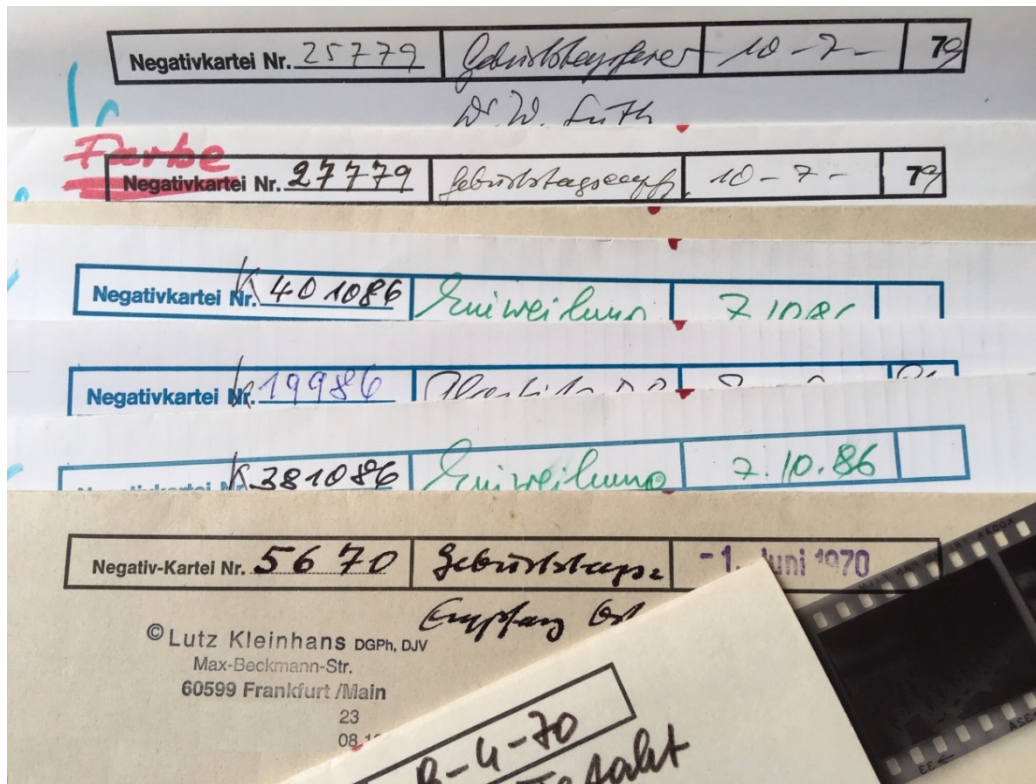 Negativkartei Nr. 25779 Geburtstagsfeier 10-7- 79
Dr. W. Luth
Farbe
Negativkartei Nr. 27779 Geburtstagsempf. 10-7- 79
Negativkartei Nr. K 401086 Einweihung 7.1086
Negativkartei Nr. K 19986
K 381086 Einweihung 7.10.86
Negativ-Kartei Nr. 5670 Geburtstags -1. Juni 1970
Empfang
© Lutz Kleinhans DGPh, DJV
Max-Beckmann-Str.
60599 Frankfurt /Main
23
08
-4-70